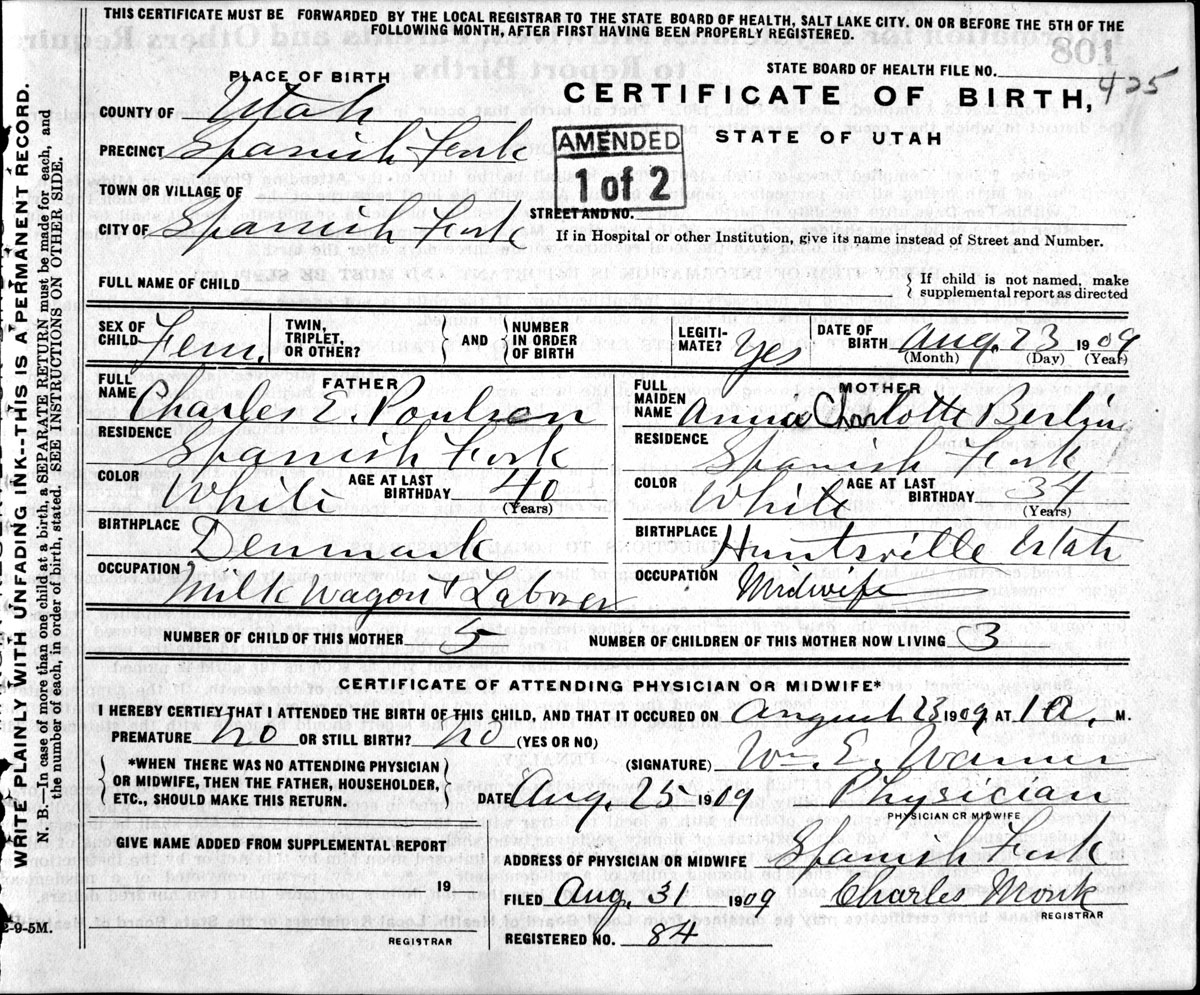 THIS CERTIFICATE MUST BE FORWARDED BY THE LOCAL REGISTRAR TO THE STATE BOARD OF HEALTH, SALT LAKE CITY. ON OR BEFORE THE 5TH OF THE
FOLLOWING MONTH, AFTER FIRST HAVING BEEN PROPERLY REGISTERED.
STATE BOARD OF HEALTH FILE NO. 425
PLACE OF BIRTH
CERTIFICATE OF BIRTH,
STATE OF UTAH
COUNTY OF Utah
PRECINCT Spanish Fork
AMENDED
1 of 2
TOWN OR VILLAGE OF
STREET AND NO.
CITY OF Spanish Fork
If in Hospital or other Institution, give its name instead of Street and Number.
FULL NAME OF CHILD
If child is not named, make
supplemental report as directed
SEX OF
CHILD Fem.
TWIN,
TRIPLET,
OR OTHER?
AND
NUMBER
IN ORDER
OF BIRTH
LEGITI-
MATE? Yes
DATE OF
BIRTH Aug. 23 1909
(Month) (Day) (Year)
FATHER
FULL
NAME Charles E. Poulson
RESIDENCE
Spanish Fork
COLOR White AGE AT LAST
BIRTHDAY 40
(Years)
BIRTHPLACE
Denmark
OCCUPATION
Milk Wagon Laborer
MOTHER
FULL
MAIDEN
NAME Annie Charlotte Berlin
RESIDENCE
Spanish Fork
COLOR White AGE AT LAST
BIRTHDAY 34
(Years)
BIRTHPLACE Huntsville
OCCUPATION Midwife
NUMBER OF CHILD OF THIS MOTHER 5 NUMBER OF CHILDREN OF THIS MOTHER NOW LIVING 3
CERTIFICATE OF ATTENDING PHYSICIAN OR MIDWIFE*
I HEREBY CERTIEY THAT I ATTENDED THE BIRTH OF THIS CHILD, AND THAT IT OCCURED ON August 23 1909, AT 1 a. M.
PREMATURE No OR STILL BIRTH? No (YES OR NO)
(SIGNATURE) Wm. E. Warner
*WHEN THERE WAS NO ATTENDING PHYSICIAN
OR MIDWIFE, THEN THE FATHER, HOUSEHOLDER,
ETC., SHOULD MAKE THIS RETURN.
DATE Aug. 25 1909 Physician
PHYSICIAN OR MIDWIFE
GIVE NAME ADDED FROM SUPPLEMENTAL REPORT
ADDRESS OF PHYSICIAN OR MIDWIFE Spanish Fork
19
FILED Aug. 31 1909 Charles Monk
REGISTRAR
REGISTRAR
REGISTERED NO. 84
2-9-5M.
WRITE PLAINLY WITH UNFADING INK--THIS IS A PERMANENT RECORD.
N. B.—In case of more than one child at a birth, a SEPARATE RETURN must be made for each, and
the number of each, in order of birth, stated. SEE INSTRUCTIONS ON OTHER SIDE.